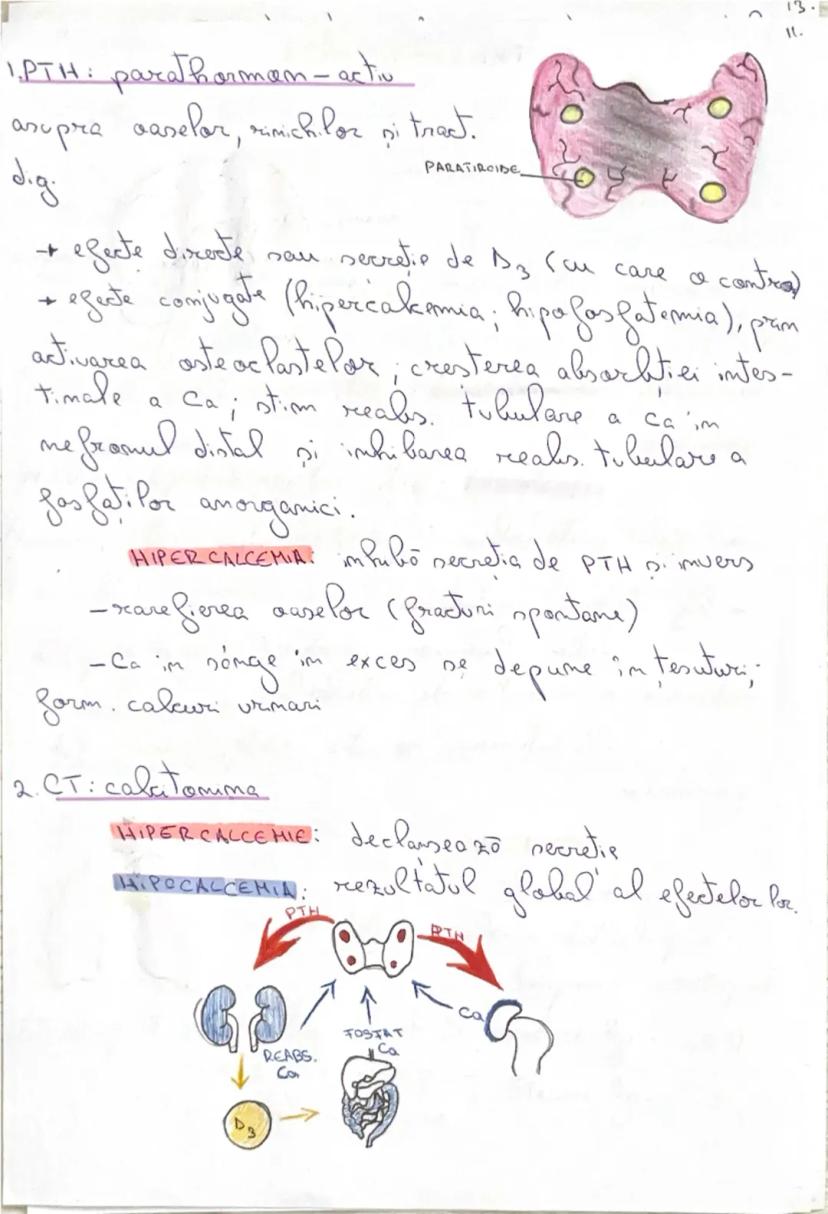 13.
11.
1. PTH: parathormon – activ
asupra oaselor, rinichilor și tract.
dig.
PARATIROIDE
→ efecte directe sau secreție de D3 (cu care a contra)
→ efecte conjugate (hipercalcemia; hipofosfatemia), prin
activarea osteoclastelor; creșterea absorbtiei intes-
tinale a Ca; stim reabs. tubulare a Ca în
nefronul distal și inhibarea reabs. tubulare a
fosfaților anorganici.
HIPERCALCEMIA: inhibă secreția de PTH și invers
– rarefierea oaselor (fracturi spontane)
– Ca in sânge în exces se depune în țesuturi;
form. calculi urinari
2. CT: calcitonina
HIPERCALCEMIE: declanșează secretie
HIPOCALCEMIA: rezultatul global al efectelor lor.
PTH
PTH
REABS.
Ca
FOSFAT
Ca
Ca
D3